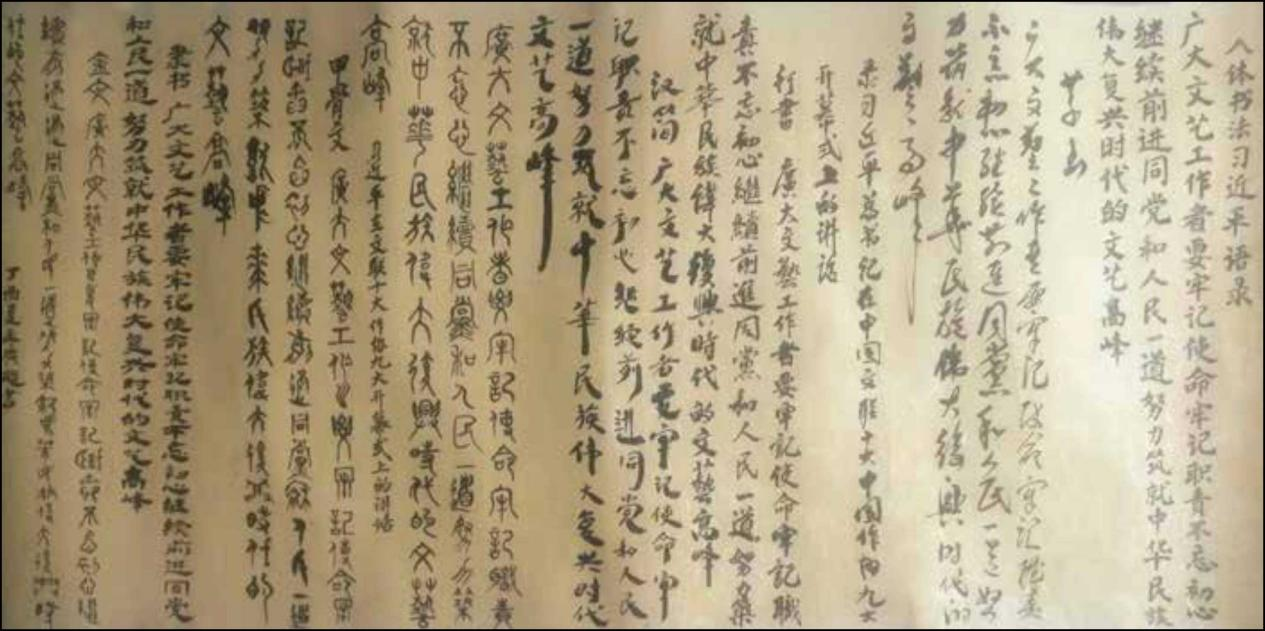 八体书法习近平语录
广大文艺工作者要牢记使命牢记职责不忘初心
继续前进同党和人民一道努力筑就中华民族
伟大复兴时代的文艺高峰
草书
广大文艺工作者要牢记使命牢记职责
不忘初心继续前进同党和人民一道努
力筑就中华民族伟大复兴时代的
文艺高峰
录习近平总书记在中国文联十大中国作协九大
开幕式上的讲话
行書 廣大文藝工作者要牢記使命牢記職
責不忘初心繼續前進同黨和人民一道努力築
就中华民族偉大復興時代的文藝高峰
汉简 广大文艺工作者要牢记使命牢
记职责不忘初心继续前进同党和人民
一道努力筑就中華民族伟大复兴时代
文艺高峰
廣大文藝工作者要牢記使命牢記職責
不忘初心繼續前進同黨和人民一道努力築
就中華民族偉大復興時代的文藝
高峰 习近平在文联十大作协九大开幕式上的讲话
甲骨文 廣大文藝工作者要牢記使命牢
記職責不忘初心繼續前進同黨和人民一道
努力築就中華民族偉大復興時代的
文藝高峰
隶书 广大文艺工作者要牢记使命牢记职责不忘初心继续前进同党
和人民一道努力筑就中华民族伟大复兴时代的文艺高峰
金文 廣大文藝工作者要牢記使命牢記職責不忘初心繼
續前進同黨和人民一道努力築就中華民族偉大復興時
代的文藝高峰 丁酉